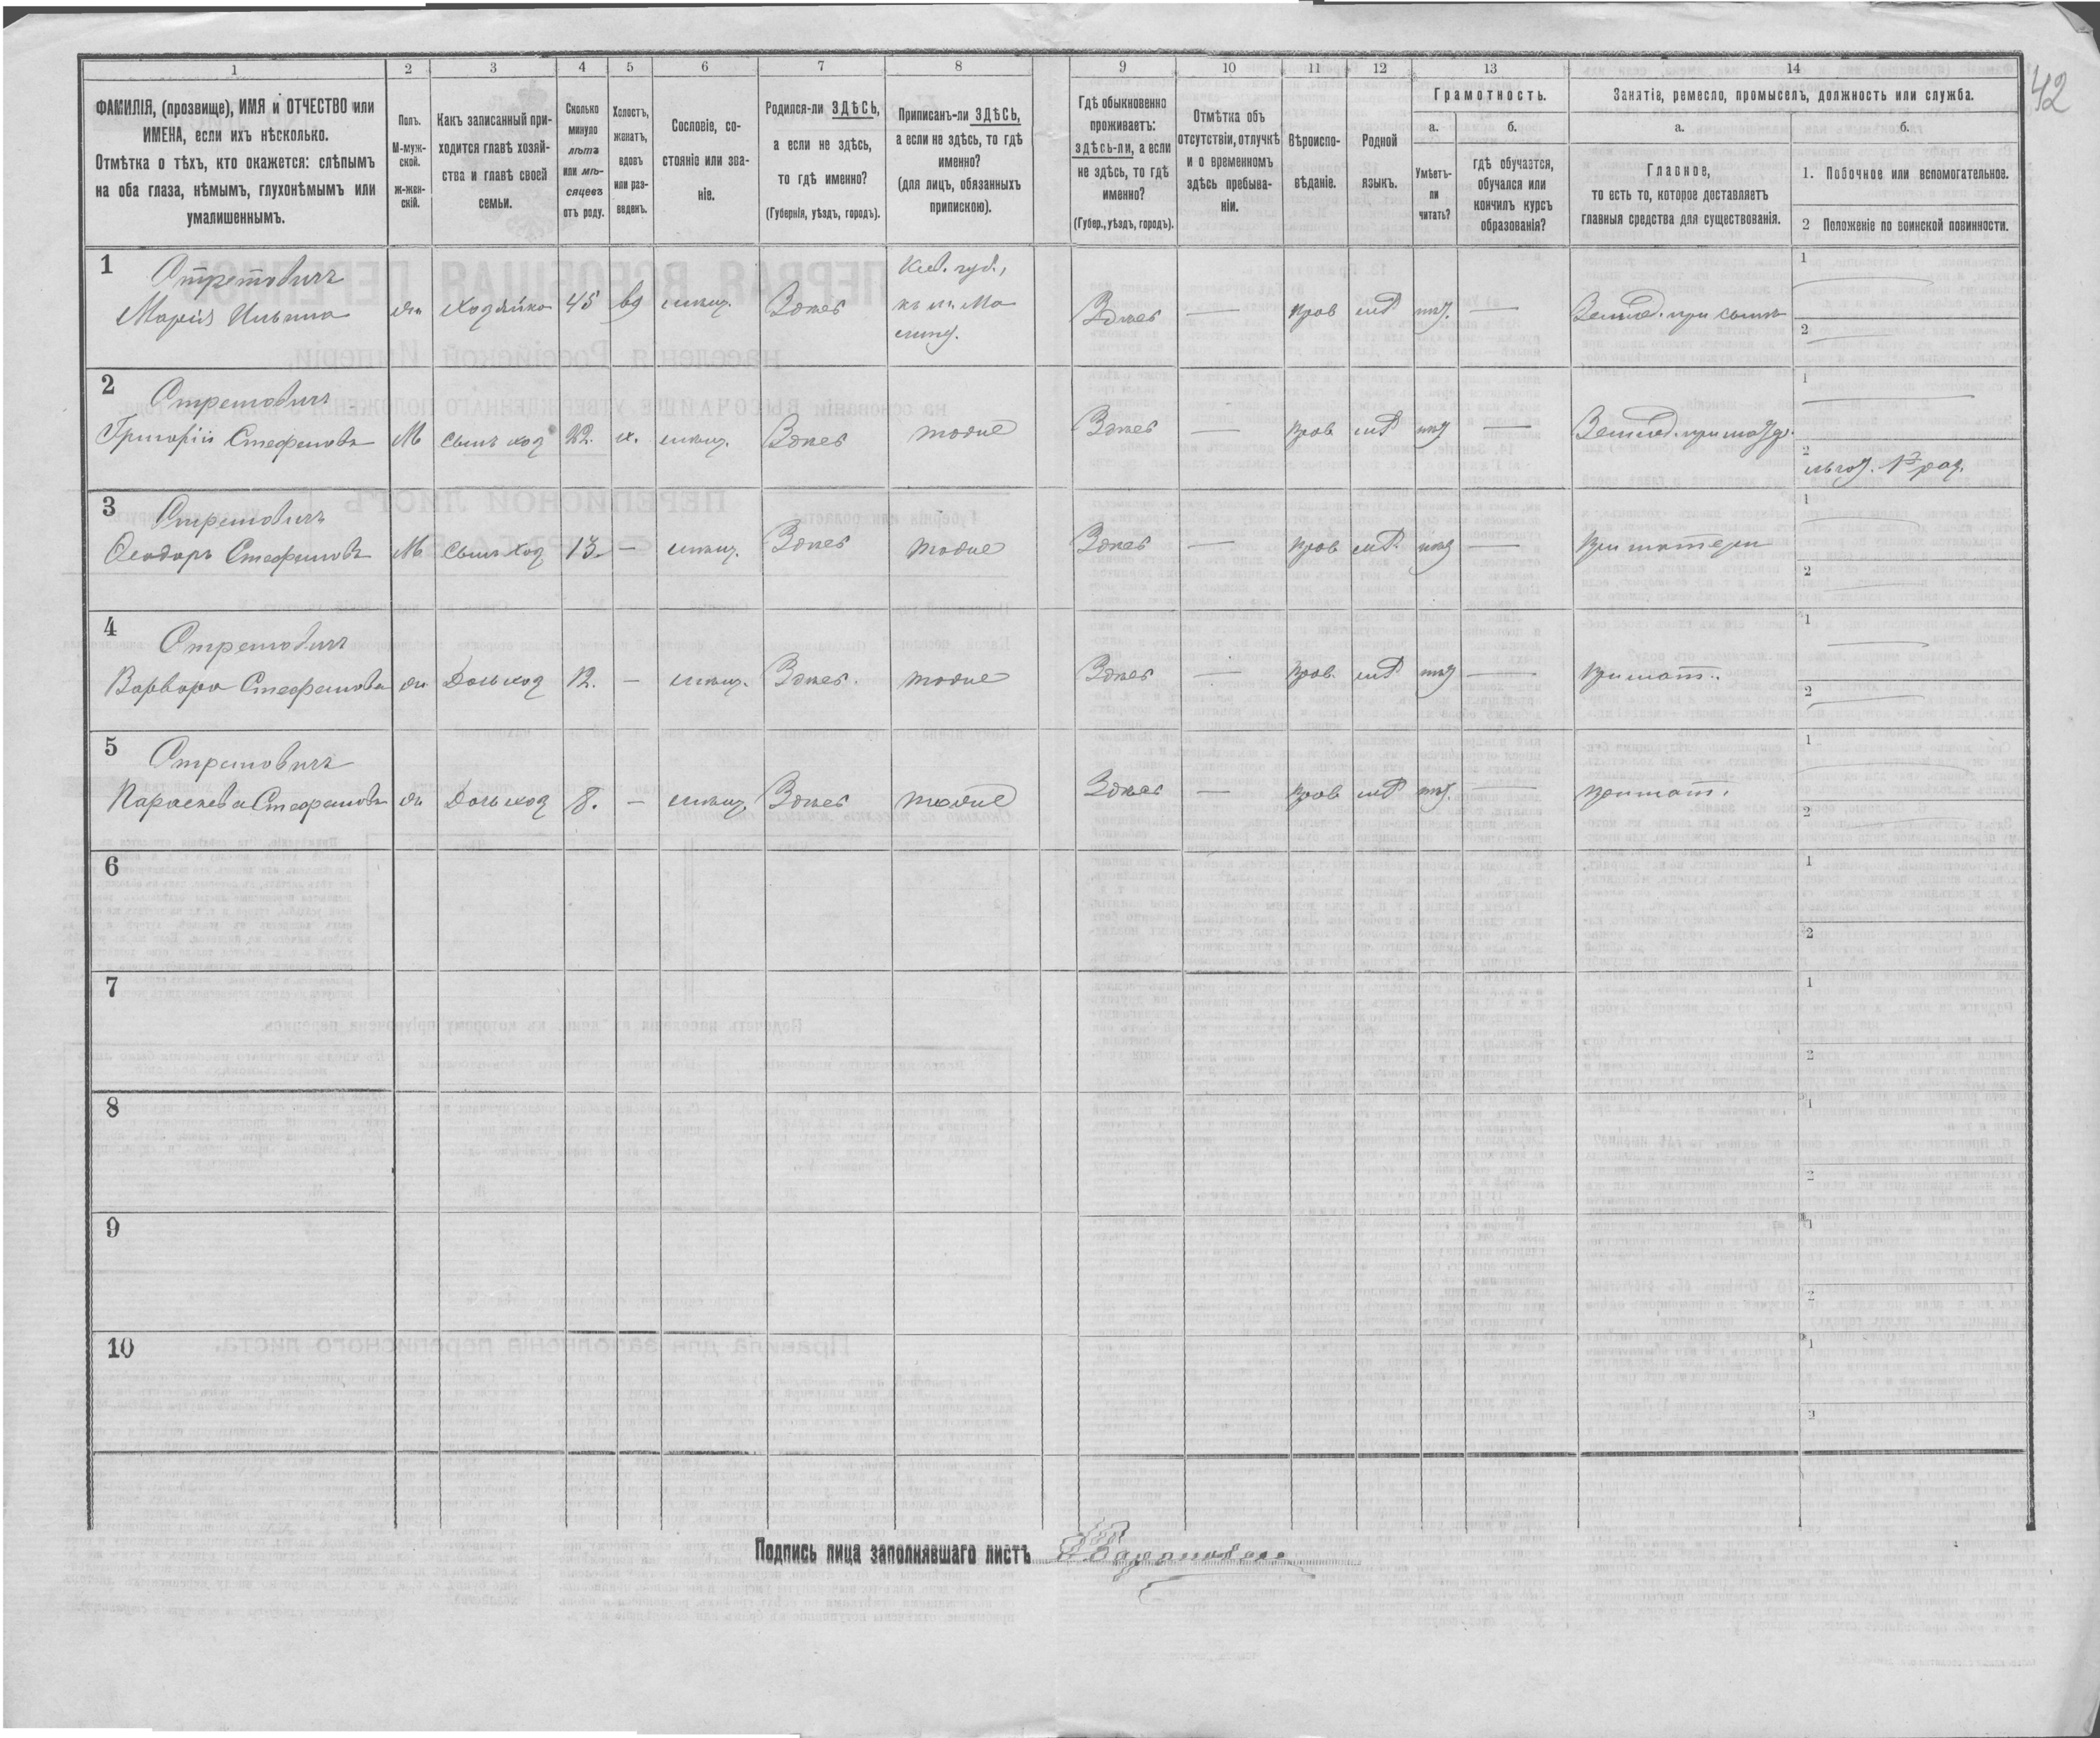 42
1 2 3 4 5 6 7 8 9 10 11 12 13 14
ФАМИЛІЯ, (прозвище), ИМЯ и ОТЧЕСТВО или
ИМЕНА, если ихъ нѣсколько.
Отмѣтка о тѣхъ, кто окажется: слѣпымъ
на оба глаза, нѣмымъ, глухонѣмымъ или
умалишеннымъ.
Полъ.
М-муж-
ской.
Ж-жен-
скій.
Какъ записанный при-
ходится главѣ хозяй-
ства и главѣ своей
семьи.
Сколько
минуло
лѣтъ
или мѣ-
сяцевъ
отъ роду.
Холостъ,
женатъ,
вдовъ
или раз-
веденъ.
Сословіе, со-
стояніе или зва-
ніе.
Родился-ли ЗДѢСЬ,
а если не здѣсь,
то гдѣ именно?
(Губернія, уѣздъ, городъ).
Приписанъ-ли ЗДѢСЬ,
а если не здѣсь, то гдѣ
именно?
(для лицъ, обязанныхъ
припискою).
Гдѣ обыкновенно
проживаетъ:
здѣсь-ли, а если
не здѣсь, то гдѣ
именно?
(Губер., уѣздъ, городъ).
Отмѣтка объ
отсутствіи, отлучкѣ
и о временномъ
здѣсь пребыва-
ніи.
Вѣроиспо-
вѣданіе.
Родной
языкъ.
Грамотность.
а.
Умѣетъ-
ли
читать?
б.
гдѣ обучается,
обучался или
кончилъ курсъ
образованія?
Занятіе, ремесло, промыселъ, должность или служба.
а.
Главное,
то есть то, которое доставляетъ
главныя средства для существованія.
б.
1. Побочное или вспомогательное.
2 Положеніе по воинской повинности.
1
Стретовичъ
Марія Ильина
Хозяйка 45 вд Здѣсь
Кіев. губ.,
Здѣсь — прав — Землед. при сынѣ
1
2
2
Стретовичъ
Григорій Стефановъ М сынъ хоз 22. х. Здѣсь тоже Здѣсь — прав —
1
2
льгот. 1 раз.
3
Стретовичъ
Ѳеодоръ Стефановъ М сынъ хоз 13. — Здѣсь тоже Здѣсь — прав — при матери
1
2
4
Стретовичъ
Варвара Стефанова Дочь хоз 12. — Здѣсь. тоже Здѣсь — прав. — при мат.
1
2
5
Стретовичъ
Параскева Стефанова Дочь хоз 8. — Здѣсь тоже Здѣсь — прав — при мат.
1
2
6
1
2
7
1
2
8
1
2
9
1
2
10
1
2
Подпись лица заполнявшаго листъ